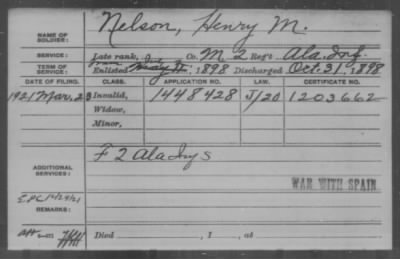 NAME OF SOLDIER: Nelson, Henry M.
SERVICE: Late rank, Co. M 2 Reg't Ala. Inf.
TERM OF SERVICE: Enlisted May 1898 Discharged Oct. 31, 1898
DATE OF FILING. CLASS. APPLICATION NO. LAW. CERTIFICATE NO.
1921 Mar. 23 Invalid, 1448428 J/20 1203662
Widow,
Minor,
ADDITIONAL SERVICES: F 2 Ala Inf
WAR WITH SPAIN
REMARKS:
Died , 1 , at